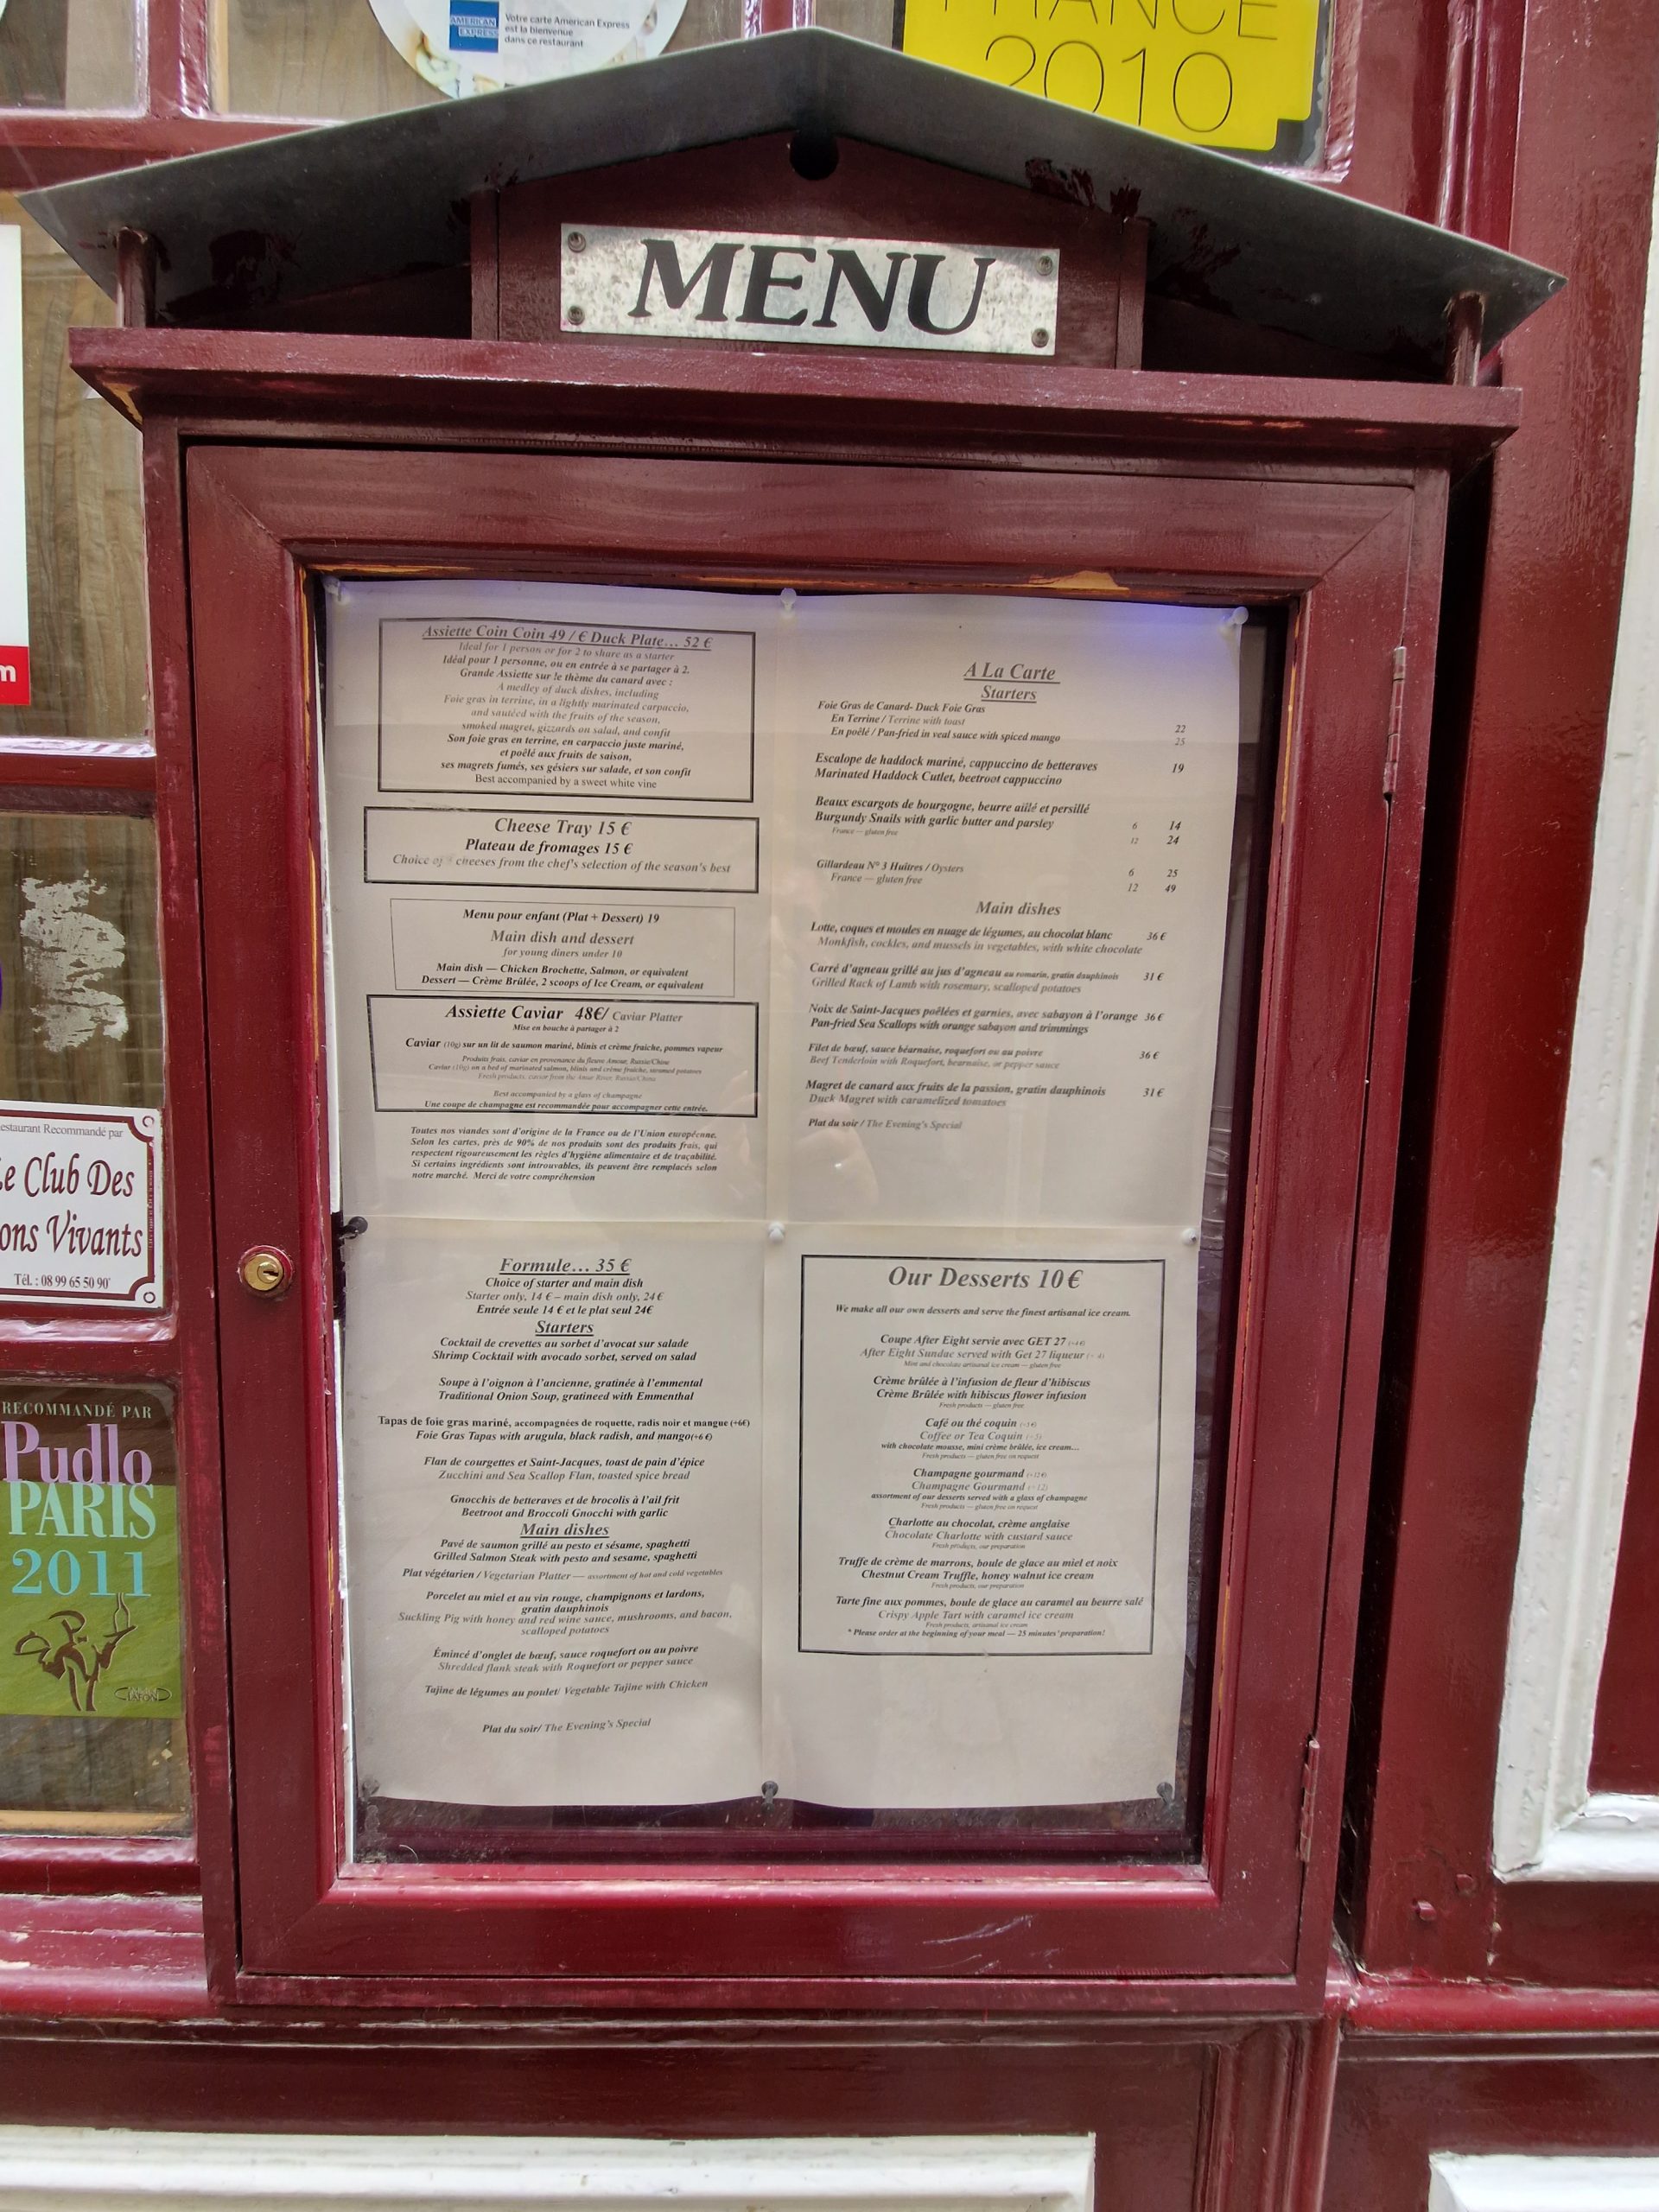 AMERICAN EXPRESS
Votre carte American Express
est la bienvenue
dans ce restaurant
FRANCE
2010
MENU
Assiette Coin Coin 49 / € Duck Plate… 52 €
Ideal for 1 person or for 2 to share as a starter
Idéal pour 1 personne, ou en entrée à se partager à 2.
Grande Assiette sur le thème du canard avec :
A medley of duck dishes, including
Foie gras in terrine, in a lightly marinated carpaccio,
and sautéed with the fruits of the season,
smoked magret, gizzards on salad, and confit
Son foie gras en terrine, en carpaccio juste mariné,
et poêlé aux fruits de saison,
ses magrets fumés, ses gésiers sur salade, et son confit
Best accompanied by a sweet white vine
Cheese Tray 15 €
Plateau de fromages 15 €
Choice of cheeses from the chef's selection of the season's best
Menu pour enfant (Plat + Dessert) 19
Main dish and dessert
for young diners under 10
Main dish — Chicken Brochette, Salmon, or equivalent
Dessert — Crème Brûlée, 2 scoops of Ice Cream, or equivalent
Assiette Caviar 48€/ Caviar Platter
Mise en bouche à partager à 2
Caviar (10g) sur un lit de saumon mariné, blinis et crème fraiche, pommes vapeur
Produits frais, caviar en provenance du fleuve Amour, Russie/Chine
Caviar (10g) on a bed of marinated salmon, blinis and crème fraîche, steamed potatoes
Fresh products, caviar from the Amur River, Russia/China
Best accompanied by a glass of champagne
Une coupe de champagne est recommandée pour accompagner cette entrée.
Toutes nos viandes sont d'origine de la France ou de l'Union européenne.
Selon les cartes, près de 90% de nos produits sont des produits frais, qui
respectent rigoureusement les règles d'hygiène alimentaire et de traçabilité.
Si certains ingrédients sont introuvables, ils peuvent être remplacés selon
notre marché. Merci de votre compréhension
A La Carte
Starters
Foie Gras de Canard- Duck Foie Gras
En Terrine / Terrine with toast 22
En poêlé / Pan-fried in veal sauce with spiced mango 25
Escalope de haddock mariné, cappuccino de betteraves 19
Marinated Haddock Cutlet, beetroot cappuccino
Beaux escargots de bourgogne, beurre aillé et persillé
Burgundy Snails with garlic butter and parsley 6 14
France — gluten free 12 24
Gillardeau N° 3 Huîtres / Oysters 6 25
France — gluten free 12 49
Main dishes
Lotte, coques et moules en nuage de légumes, au chocolat blanc 36 €
Monkfish, cockles, and mussels in vegetables, with white chocolate
Carré d'agneau grillé au jus d'agneau au romarin, gratin dauphinois 31 €
Grilled Rack of Lamb with rosemary, scalloped potatoes
Noix de Saint-Jacques poêlées et garnies, avec sabayon à l'orange 36 €
Pan-fried Sea Scallops with orange sabayon and trimmings
Filet de bœuf, sauce béarnaise, roquefort ou au poivre 36 €
Beef Tenderloin with Roquefort, bearnaise, or pepper sauce
Magret de canard aux fruits de la passion, gratin dauphinois 31 €
Duck Magret with caramelized tomatoes
Plat du soir / The Evening's Special
Formule… 35 €
Choice of starter and main dish
Starter only, 14 € – main dish only, 24 €
Entrée seule 14 € et le plat seul 24€
Starters
Cocktail de crevettes au sorbet d'avocat sur salade
Shrimp Cocktail with avocado sorbet, served on salad
Soupe à l'oignon à l'ancienne, gratinée à l'emmental
Traditional Onion Soup, gratineed with Emmenthal
Tapas de foie gras mariné, accompagnées de roquette, radis noir et mangue (+6€)
Foie Gras Tapas with arugula, black radish, and mango(+6 €)
Flan de courgettes et Saint-Jacques, toast de pain d'épice
Zucchini and Sea Scallop Flan, toasted spice bread
Gnocchis de betteraves et de brocolis à l'ail frit
Beetroot and Broccoli Gnocchi with garlic
Main dishes
Pavé de saumon grillé au pesto et sésame, spaghetti
Grilled Salmon Steak with pesto and sesame, spaghetti
Plat végétarien / Vegetarian Platter — assortment of hot and cold vegetables
Porcelet au miel et au vin rouge, champignons et lardons,
gratin dauphinois
Suckling Pig with honey and red wine sauce, mushrooms, and bacon,
scalloped potatoes
Émincé d'onglet de bœuf, sauce roquefort ou au poivre
Shredded flank steak with Roquefort or pepper sauce
Tajine de légumes au poulet/ Vegetable Tajine with Chicken
Plat du soir/ The Evening's Special
Our Desserts 10 €
We make all our own desserts and serve the finest artisanal ice cream.
Coupe After Eight servie avec GET 27
After Eight Sundae served with Get 27 liqueur
Mint and chocolate artisanal ice cream — gluten free
Crème brûlée à l'infusion de fleur d'hibiscus
Crème Brûlée with hibiscus flower infusion
Fresh products — gluten free
Café ou thé coquin
Coffee or Tea Coquin
with chocolate mousse, mini crème brûlée, ice cream…
Fresh products — gluten free on request
Champagne gourmand (+12€)
Champagne Gourmand (+12)
assortment of our desserts served with a glass of champagne
Fresh products — gluten free on request
Charlotte au chocolat, crème anglaise
Chocolate Charlotte with custard sauce
Fresh products, our preparation
Truffe de crème de marrons, boule de glace au miel et noix
Chestnut Cream Truffle, honey walnut ice cream
Fresh products, our preparation
Tarte fine aux pommes, boule de glace au caramel au beurre salé
Crispy Apple Tart with caramel ice cream
Fresh products, artisanal ice cream
* Please order at the beginning of your meal — 25 minutes' preparation!
m
estaurant Recommandé par
Le Club Des
ons Vivants
Tél. : 08 99 65 50 90
RECOMMANDÉ PAR
Pudlo
PARIS
2011
LAFON